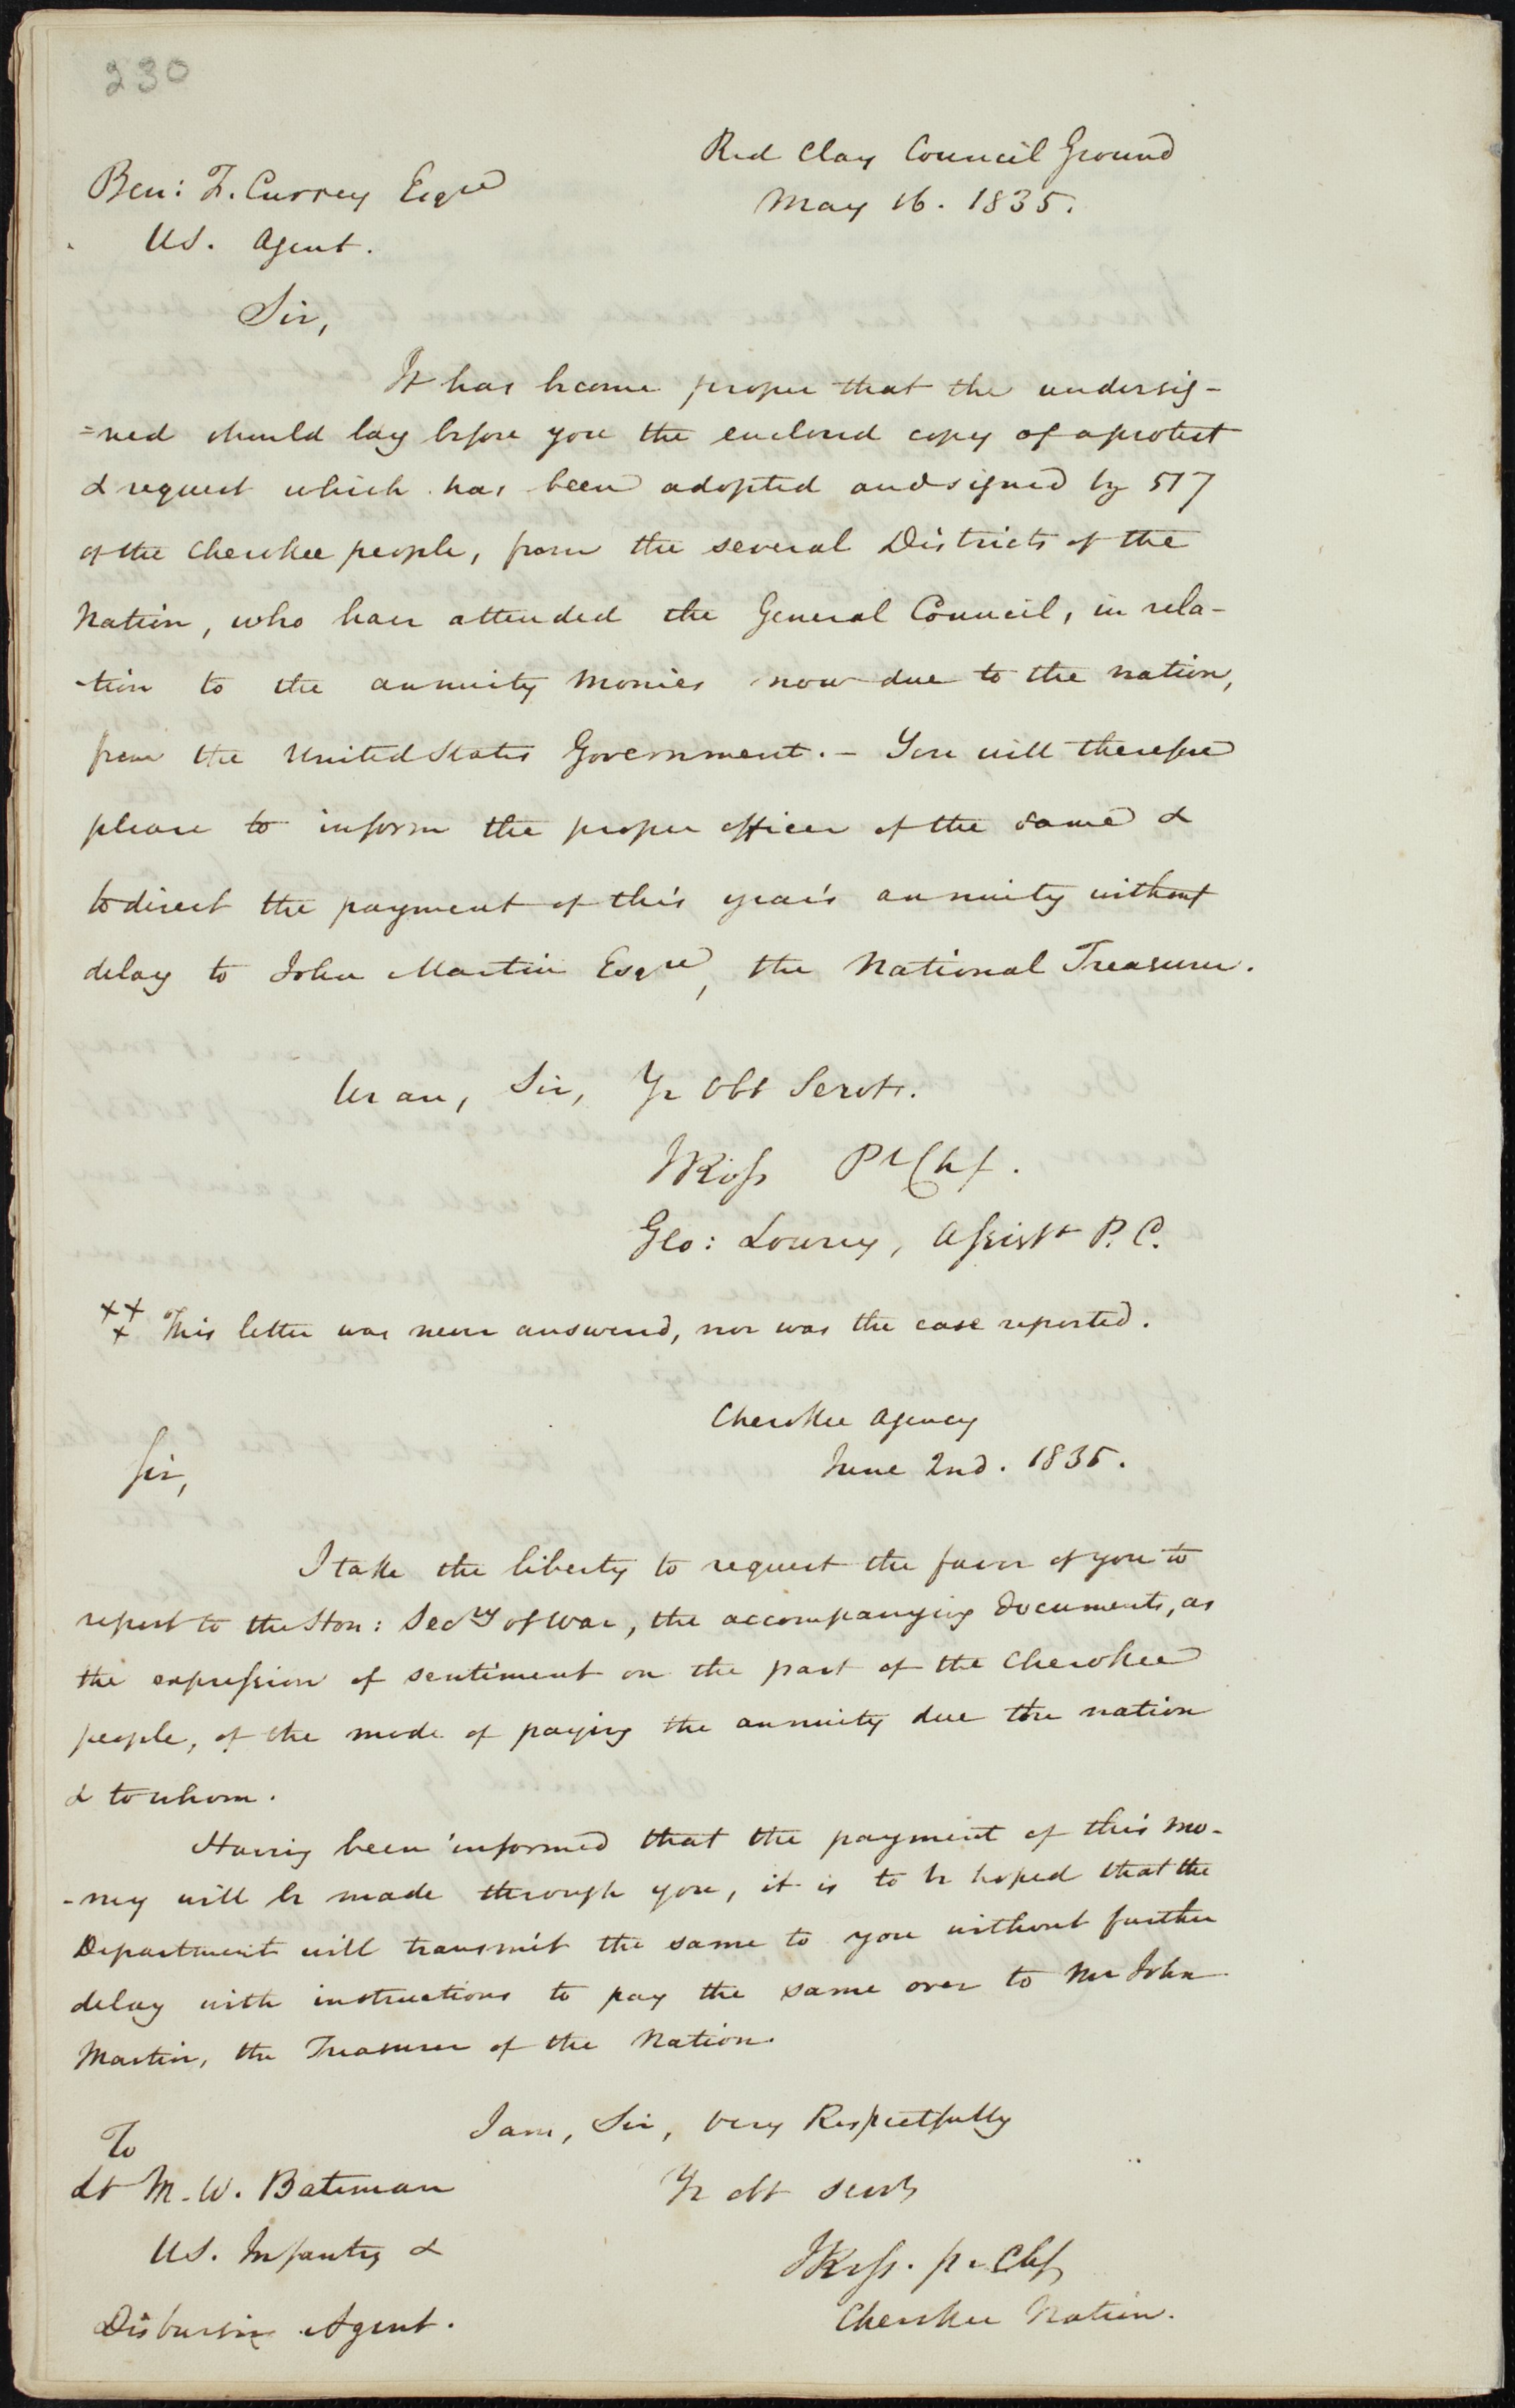 230
Red Clay Council Ground
May 16. 1835.
Ben: F. Currey Esqre
US. Agent.
Sir,
It has become proper that the undersig-
=ned should lay before you the enclosed copy of a protest
& request which has been adopted and signed by 517
of the Cherokee people, from the several Districts of the
Nation, who have attended the General Council, in rela-
-tion to the annuity monies now due to the nation,
from the United States Government. - You will therefore
please to inform the proper officer of the same &
to direct the payment of this year's annuity without
delay to John Martin Esqre, the National Treasurer.
We are, Sir, Yr Obt Servts.
JRoss Pr Chf.
Geo: Lowrey, Assistt P. C.
+++ This letter was never answered, nor was the case reported.
Cherokee Agency
June 2nd. 1835.
Sir,
I take the liberty to request the favor of you to
report to the Hon: Secry of War, the accompanying documents, as
the expression of sentiment on the part of the Cherokee
people, of the mode of paying the annuity due the nation
& to whom.
Having been informed that the payment of this mo-
-ney will be made through you, it is to be hoped that the
Department will transmit the same to you without further
delay with instructions to pay the same over to Mr John
Martin, the Treasurer of the Nation.
I am, Sir, Very Respectfully
Yr obt servt
JRoss. pr Chf
Cherokee Nation.
To
Lt M. W. Bateman
US. Infantry &
Disbursing Agent.